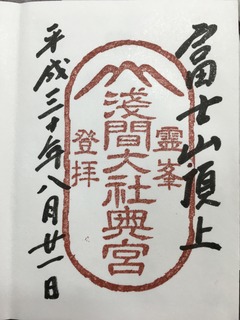 富士山頂上
霊峯
浅間大社奥宮
登拝
平成三十年八月廿一日